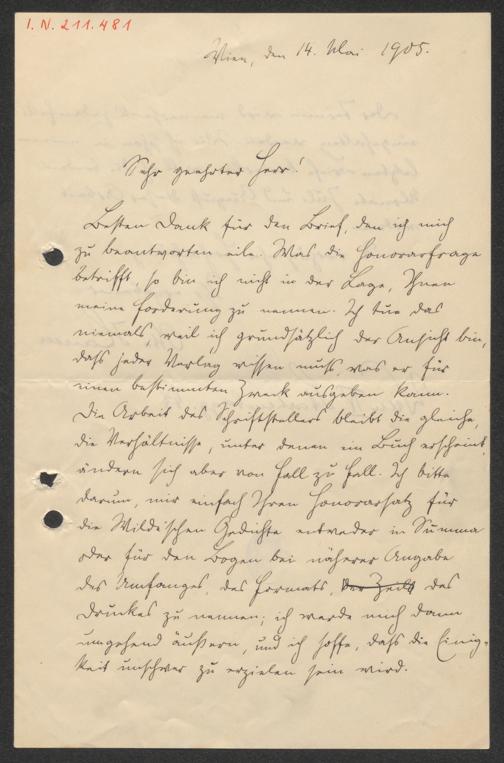 I. N. 211.481
Wien, den 14. Mai 1905.
Sehr geehrter Herr!
Besten Dank für den Brief, den ich mich
zu beantworten eile. Was die Honorarfrage
betrifft, so bin ich nicht in der Lage, Ihnen
meine Forderung zu nennen. Ich tue das
niemals, weil ich grundsätzlich der Ansicht bin,
dass jeder Verlag wissen muss, was er für
einen bestimmten Zweck ausgeben kann.
Die Arbeit des Schriftstellers bleibt die gleiche,
die Verhältnisse, unter denen ein Buch erscheint,
ändern sich aber von Fall zu Fall. Ich bitte
darum, mir einfach Ihren Honorarsatz für
die Wilde'schen Gedichte entweder in Summa
oder für den Bogen bei näherer Angabe
des Umfanges, des Formats, der Zeile des
Druckes zu nennen; ich werde mich dann
umgehend äußern, und ich hoffe, dass die Einig-
keit unschwer zu erzielen sein wird.